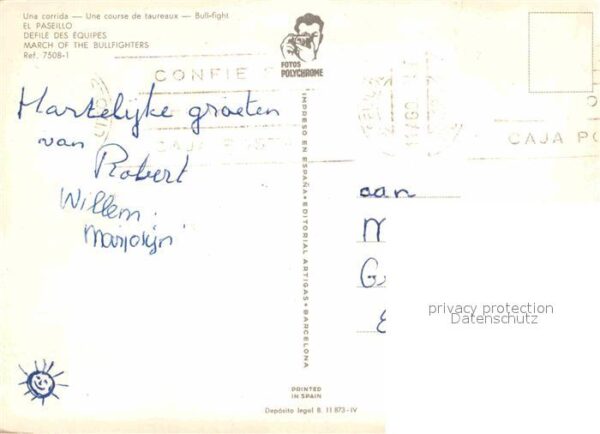 Una corrida — Une course de taureaux — Bull-fight
EL PASEILLO
DEFILE DES ÉQUIPES
MARCH OF THE BULLFIGHTERS
Ref. 7508-1
FOTOS
POLYCHROME
CONFIE
CAJA POST
CAJA PO
Hartelijke groeten
van
Robert
Willem.
Marjolijn
IMPRESO EN ESPAÑA • EDITORIAL ARTIGAS • BARCELONA
aan
M
G
privacy protection
Datenschutz
PRINTED
IN SPAIN
Depósito legal B. 11 873-IV